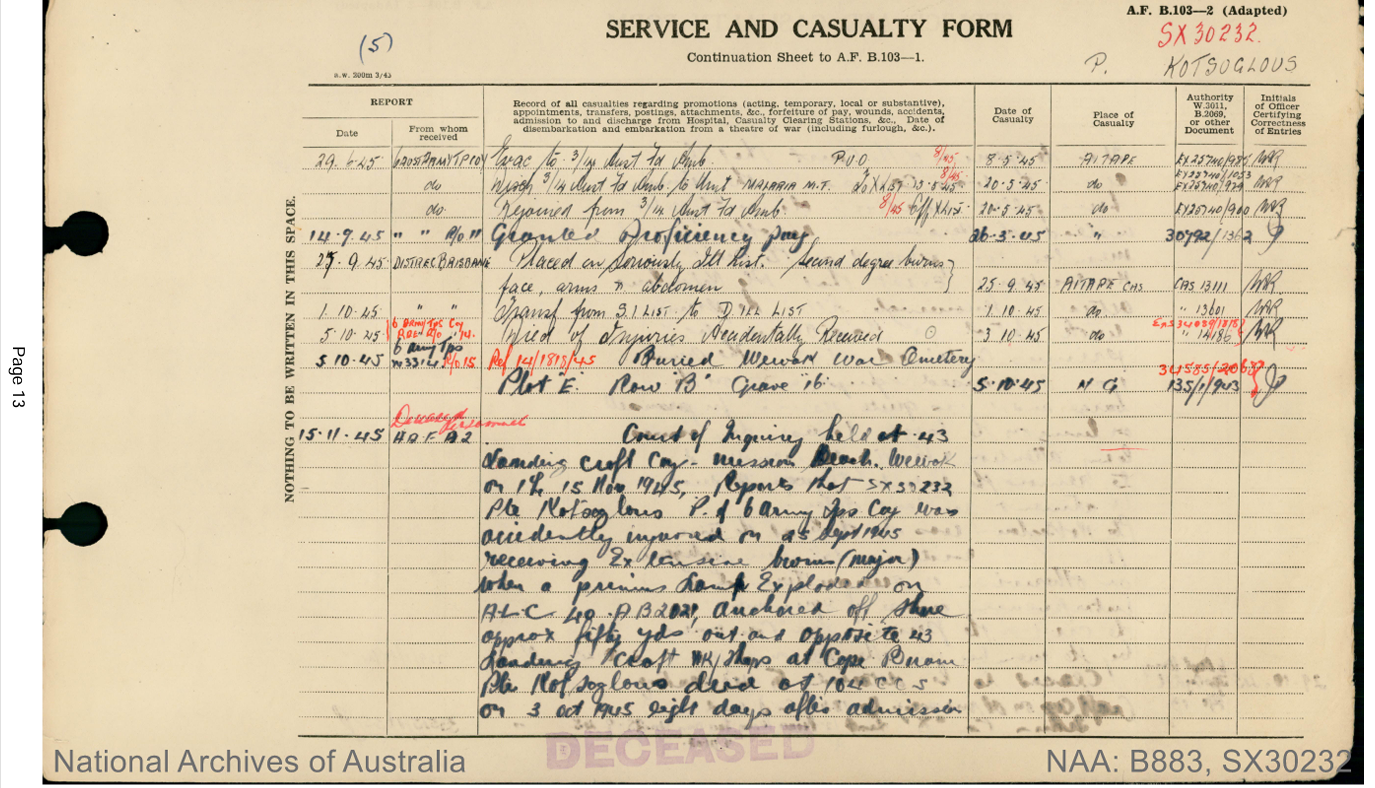 A.F. B.103—2 (Adapted)
SERVICE AND CASUALTY FORM
SX30232.
(5)
Continuation Sheet to A.F. B.103—1.
P. KOTSOGLOUS
a.w. 200m 3/43
REPORT
Date
From whom received
Record of all casualties regarding promotions (acting, temporary, local or substantive),
appointments, transfers, postings, attachments, &c., forfeiture of pay, wounds, accidents,
admission to and discharge from Hospital, Casualty Clearing Stations, &c., Date of
disembarkation and embarkation from a theatre of war (including furlough, &c.).
Date of Casualty
Place of Casualty
Authority W.3011, B.2069, or other Document
Initials of Officer Certifying Correctness of Entries
NOTHING TO BE WRITTEN IN THIS SPACE.
29.6.45 Evac to 3/14 Aust Fd Amb. P.U.O. 8/45 8.5.45 AITAPE
do Disch 3/14 Aust Fd Amb. to Unit MALARIA M.T. 8/45 20.5.45 do
do Rejoined from 3/14 Aust Fd Amb 8/45 20.5.45 do EX25740/900
14.9.45 " " R/O 11 Granted proficiency pay 26.3.45 " 30792/1362
27.9.45 DISTREC BRISBANE Placed on Seriously Ill List. Second degree burns
face, arms & abdomen 25.9.45 AITAPE CAS 13111
1.10.45 " " Transf from S.I LIST to D. ILL LIST 1.10.45 do " 13601
5.10.45 Died of Injuries Accidentally Received 3.10.45 do " 14186
5.10.45 6 Army Tps R/O 15. Ref 14/1818/45 Buried Wewak War Cemetery
Plot "E" Row "B" Grave 16 5.10.45 N G 135/1/943
Deceased Personnel
15.11.45 Court of Inquiry held at 43
Landing Craft Coy - Mission Beach. Wewak
on the 15 Nov 1945, Reports that SX30232
Pte Kotsoglous P. of 6 Army Tps Coy was
accidently injured on 25 Sept 1945
receiving Extensive burns (major)
when a primus Lamp Exploded on
A.L.C 40. AB2021, anchored off shore
approx fifty yds out and opposite 43
Landing Craft Wk/Shops at Cape
Pte Kotsoglous died at 104 CCS
on 3 Oct 1945 eight days after admission
DECEASED
Page 13
National Archives of Australia
NAA: B883, SX30232